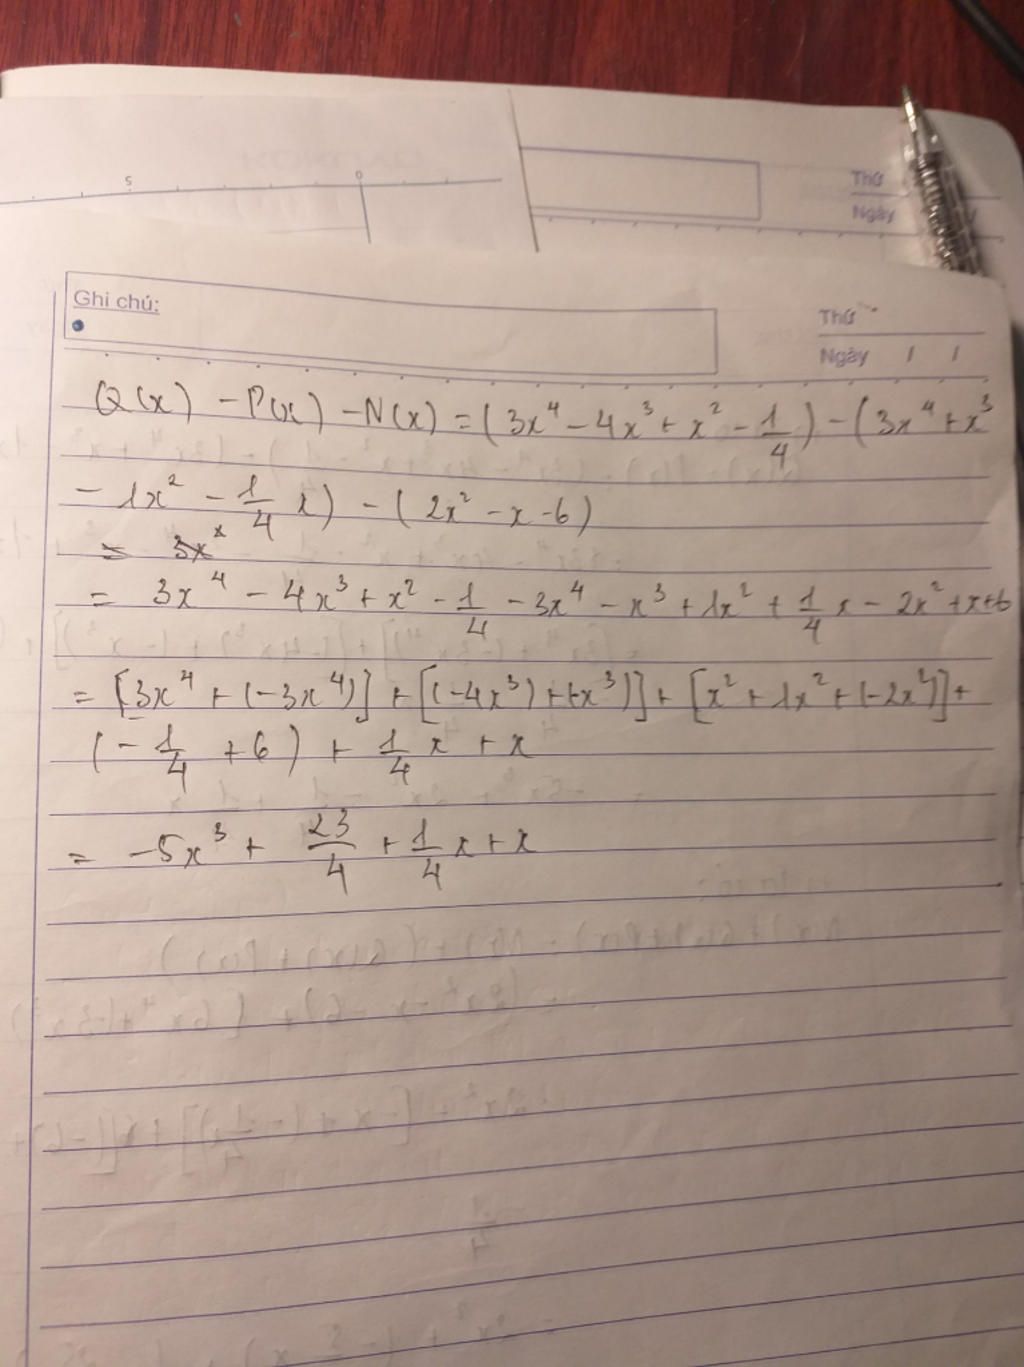 5 0
Thứ
Ngày
Ghi chú:
Thứ
Ngày / /
Q(x) - P(x) - N(x) = (3x⁴ - 4x³ + x² - 1/4) - (3x⁴ + x³
- 1x² - 1/4 x) - (2x² - x - 6)
= 3x
= 3x⁴ - 4x³ + x² - 1/4 - 3x⁴ - x³ + 1x² + 1/4 x - 2x² + x + 6
= [3x⁴ + (-3x⁴)] + [(-4x³) + (-x³)] + [x² + 1x² + (-2x²)] +
(- 1/4 + 6) + 1/4 x + x
= -5x³ + 23/4 + 1/4 x + x